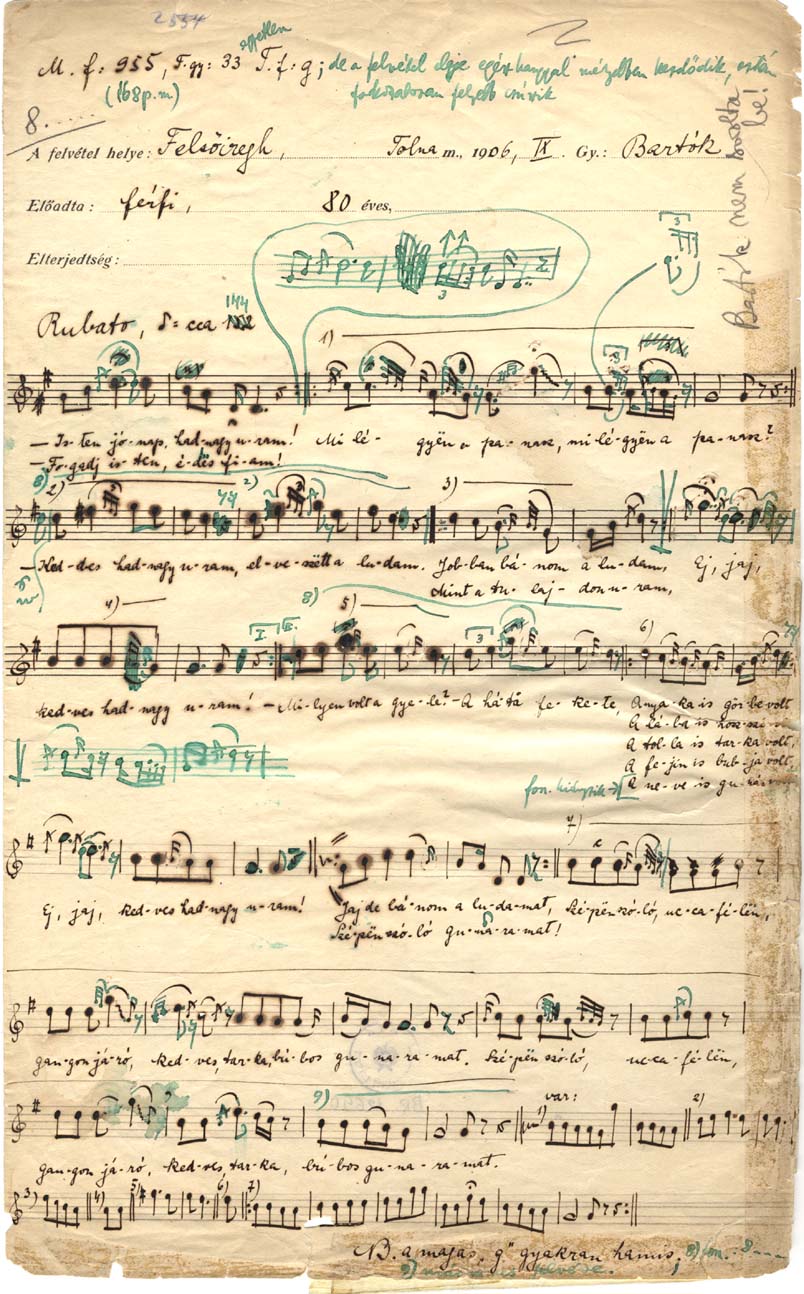 2554
egyetlen
M. f: 955, F. gy: 33 T. f: g; de a felvétel eleje egész hanggal mélyebben kezdődik, aztán
(168 p.m) fokozatosan feljebb csúszik
8.....
A felvétel helye: Felsőiregh, Tolna m., 1906, IX. Gy.: Bartók
Bartók nem húzta be!
Előadta: férfi, 80 éves,
Elterjedtség:
Rubato, = cca 144
1)
– Is-ten jó-nap, had-nagy u-ram! Mi lé-gyën a pa-nasz, mi lé-gyën a pa-nasz?
– Fo-gadj is-ten, é-dës fi-am!
2) 2) 3)
– Ked-ves had-nagy u-ram, el-ve-szëtt a lu-dam. Job-ban bá-nom a lu-dam, Ej, jaj,
Mint a tu-laj-don u-ram,
4) 8) 5) 6)
I. II.
ked-ves had-nagy u-ram! – Mi-lyen volt a gye-le? – A há-tá fe-ke-te, A nya-ka is gör-be volt
A lá-ba is hosz-szi
A tol-la is tar-ka volt,
A fe-jin is bub-ja volt,
A ne-ve is gu-nár
7)
Ej, jaj, ked-ves had-nagy u-ram! Jaj de bá-nom a lu-da-mat, Szé-pën szó-ló, uc-ca-fé-lën,
Szé-pën szó-ló gu-na-ra-mat!
gan-gon já-ró, ked-ves, tar-ka, bú-bos gu-na-ra-mat. Szé-pën szó-ló, uc-ca-fé-lën,
9) var: 1) 2)
gan-gon já-ró, ked-ves, tar-ka, bú-bos gu-na-ra-mat.
3) 4) 5) 6) 7)
NB. a magas „g" gyakran hamis; 8) fon. : 8----